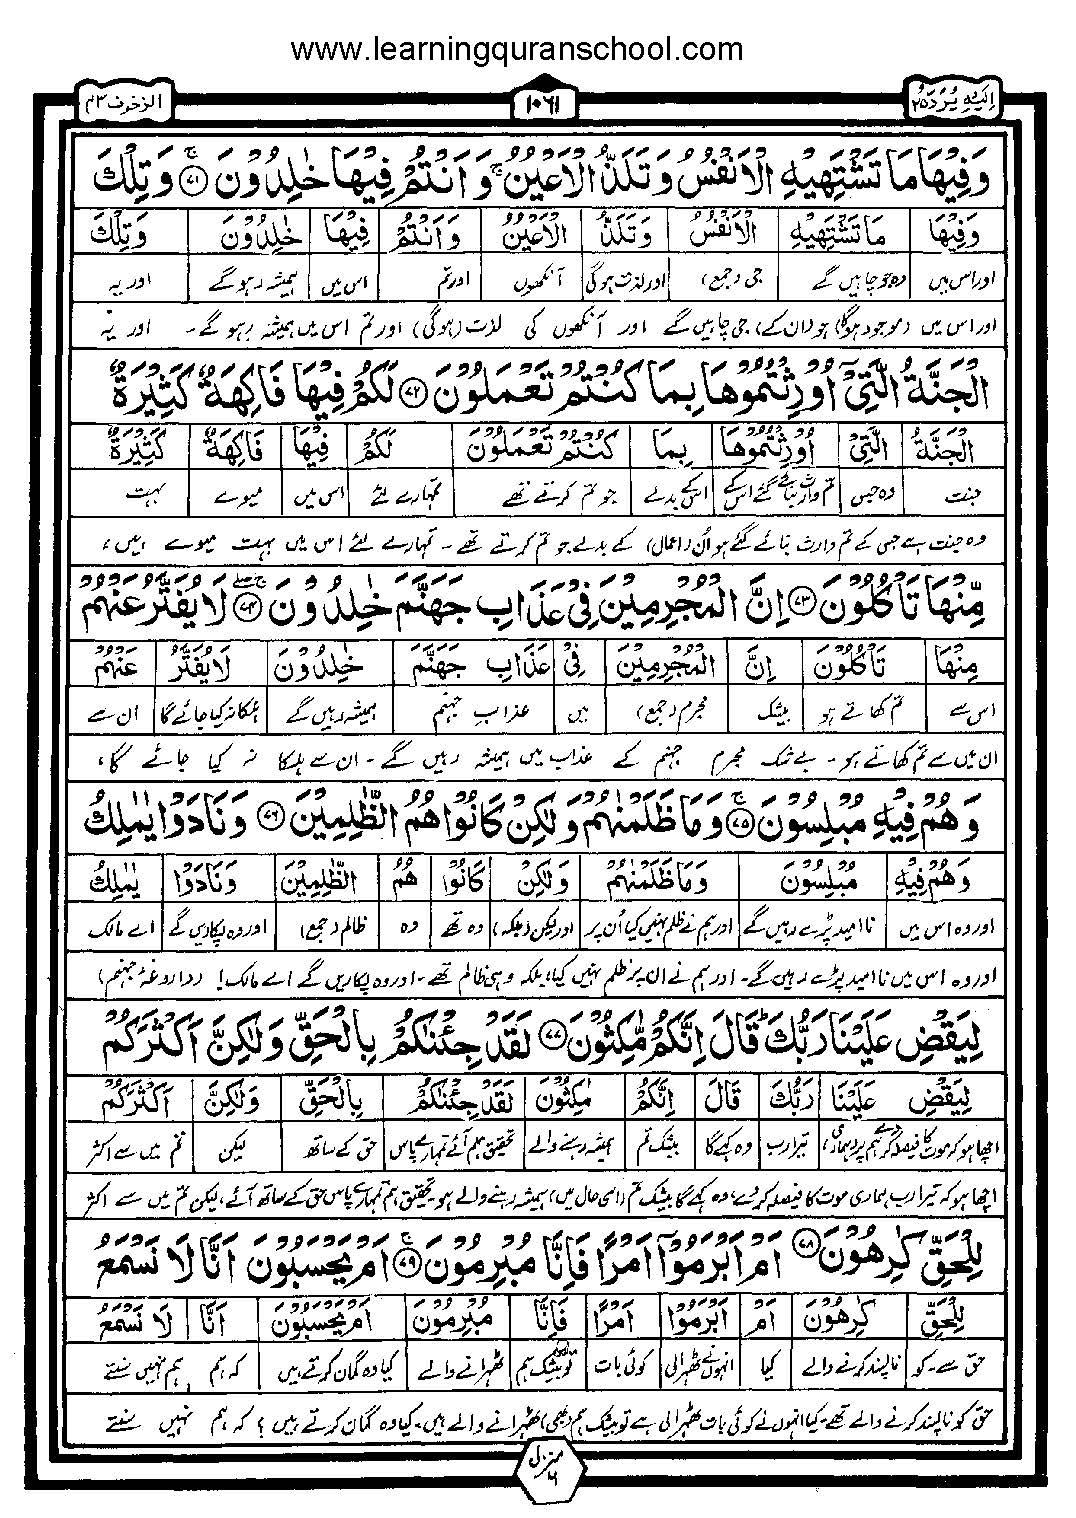 www.learningquranschool.com
اِلَیْهِ یُرَدُّ ٢٥
١٠٦١
الزخرف ٤٣
وَ فِیْهَا مَا تَشْتَهِیْهِ الْاَنْفُسُ وَ تَلَذُّ الْاَعْیُنُ ۚ وَ اَنْتُمْ فِیْهَا خٰلِدُوْنَ ۚ ﴿٧١﴾ وَ تِلْكَ
وَ فِیْهَا مَا تَشْتَهِیْهِ الْاَنْفُسُ وَ تَلَذُّ الْاَعْیُنُ وَ اَنْتُمْ فِیْهَا خٰلِدُوْنَ وَ تِلْكَ
اور اس میں وہ جو چاہیں گے جی (جمع) اور لذت ہوگی آنکھوں اور تم اس میں ہمیشہ رہوگے اور یہ
اور اس میں (موجود ہوگا) جو (ان کے) جی چاہیں گے اور آنکھوں کی لذت (ہوگی) اور تم اس میں ہمیشہ رہو گے۔ اور یہ
الْجَنَّةُ الَّتِیْۤ اُوْرِثْتُمُوْهَا بِمَا كُنْتُمْ تَعْمَلُوْنَ ﴿٧٢﴾ لَكُمْ فِیْهَا فَاكِهَةٌ كَثِیْرَةٌ
الْجَنَّةُ الَّتِیْۤ اُوْرِثْتُمُوْهَا بِمَا كُنْتُمْ تَعْمَلُوْنَ لَكُمْ فِیْهَا فَاكِهَةٌ كَثِیْرَةٌ
جنت وہ جس تم وارث بنائے گئے اس کے اسکے بدلے جو تم کرتے تھے تمہارے لئے اس میں میوے بہت
وہ جنت ہے جس کے تم وارث بنائے گئے ہو اُن (اعمال) کے بدلے جو تم کرتے تھے۔ تمہارے لئے اس میں بہت میوے ہیں،
مِّنْهَا تَاْكُلُوْنَ ﴿٧٣﴾ اِنَّ الْمُجْرِمِیْنَ فِیْ عَذَابِ جَهَنَّمَ خٰلِدُوْنَ ﴿٧٤﴾ لَا یُفَتَّرُ عَنْهُمْ
مِنْهَا تَاْكُلُوْنَ اِنَّ الْمُجْرِمِیْنَ فِیْ عَذَابِ جَهَنَّمَ خٰلِدُوْنَ لَا یُفَتَّرُ عَنْهُمْ
اس سے تم کھاتے ہو بیشک مجرم (جمع) میں عذابِ جہنم ہمیشہ رہیں گے ہلکا نہ کیا جائے گا ان سے
ان میں سے تم کھاتے ہو۔ بے شک مجرم جہنم کے عذاب میں ہمیشہ رہیں گے۔ ان سے ہلکا نہ کیا جائے گا،
وَ هُمْ فِیْهِ مُبْلِسُوْنَ ۚ ﴿٧٥﴾ وَ مَا ظَلَمْنٰهُمْ وَ لٰكِنْ كَانُوْا هُمُ الظّٰلِمِیْنَ ﴿٧٦﴾ وَ نَادَوْا یٰمٰلِكُ
وَ هُمْ فِیْهِ مُبْلِسُوْنَ وَ مَا ظَلَمْنٰهُمْ وَ لٰكِنْ كَانُوْا هُمُ الظّٰلِمِیْنَ وَ نَادَوْا یٰمٰلِكُ
اور وہ اس میں نا امید پڑے رہیں گے اور ہم نے ظلم نہیں کیا اُن پر اور لیکن (بلکہ) وہ تھے وہ ظالم (جمع) اور وہ پکاریں گے اے مالک
اور وہ اس میں نا امید پڑے رہیں گے۔ اور ہم نے ان پر ظلم نہیں کیا، بلکہ وہی ظالم تھے۔ اور وہ پکاریں گے اے مالک! (داروغۂ جہنم)
لِیَقْضِ عَلَیْنَا رَبُّكَ ؕ قَالَ اِنَّكُمْ مّٰكِثُوْنَ ﴿٧٧﴾ لَقَدْ جِئْنٰكُمْ بِالْحَقِّ وَ لٰكِنَّ اَكْثَرَكُمْ
لِیَقْضِ عَلَیْنَا رَبُّكَ قَالَ اِنَّكُمْ مّٰكِثُوْنَ لَقَدْ جِئْنٰكُمْ بِالْحَقِّ وَ لٰكِنَّ اَكْثَرَكُمْ
اچھا ہو کہ موت کا فیصلہ کر دے ہم پر (ہماری) تیرا رب وہ کہے گا بیشک تم ہمیشہ رہنے والے تحقیق ہم آئے تمہارے پاس حق کے ساتھ لیکن تم میں سے اکثر
اچھا ہو کہ تیرا رب ہماری موت کا فیصلہ کر دے، وہ کہے گا بیشک تم (اسی حال میں) ہمیشہ رہنے والے ہو۔ تحقیق ہم تمہارے پاس حق کے ساتھ آئے، لیکن تم میں سے اکثر
لِلْحَقِّ كٰرِهُوْنَ ﴿٧٨﴾ اَمْ اَبْرَمُوْۤا اَمْرًا فَاِنَّا مُبْرِمُوْنَ ۚ ﴿٧٩﴾ اَمْ یَحْسَبُوْنَ اَنَّا لَا نَسْمَعُ
لِلْحَقِّ كٰرِهُوْنَ اَمْ اَبْرَمُوْا اَمْرًا فَاِنَّا مُبْرِمُوْنَ اَمْ یَحْسَبُوْنَ اَنَّا لَا نَسْمَعُ
حق سے۔ کو ناپسند کرنے والے کیا انہوں نے ٹھہرالی کوئی بات تو بیشک ہم ٹھہرانے والے کیا وہ گمان کرتے ہیں کہ ہم ہم نہیں سنتے
حق کو ناپسند کرنے والے تھے۔ کیا انہوں نے کوئی بات ٹھہرالی ہے تو بیشک ہم (بھی) ٹھہرانے والے ہیں۔ کیا وہ گمان کرتے ہیں؟ کہ ہم نہیں سنتے
منزل ٦